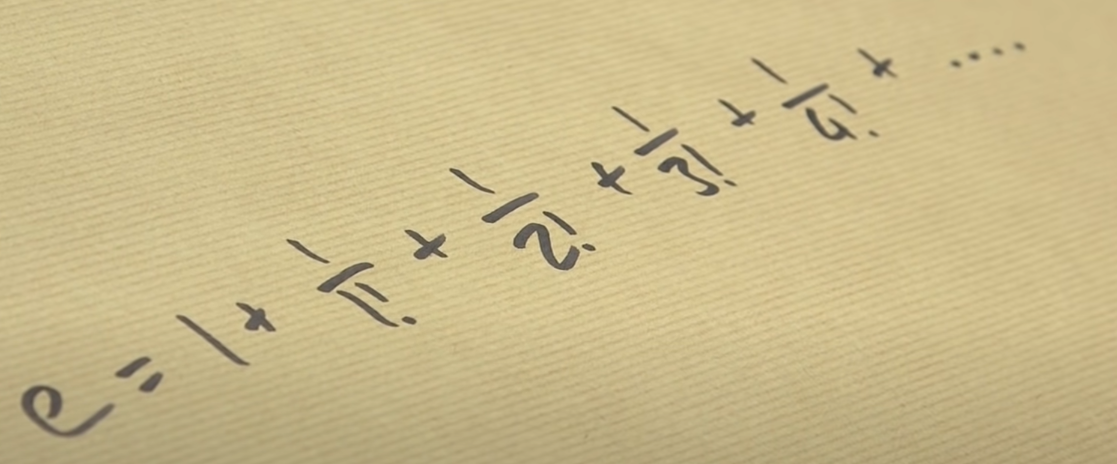 e = 1 + 1/1! + 1/2! + 1/3! + 1/4! + ....